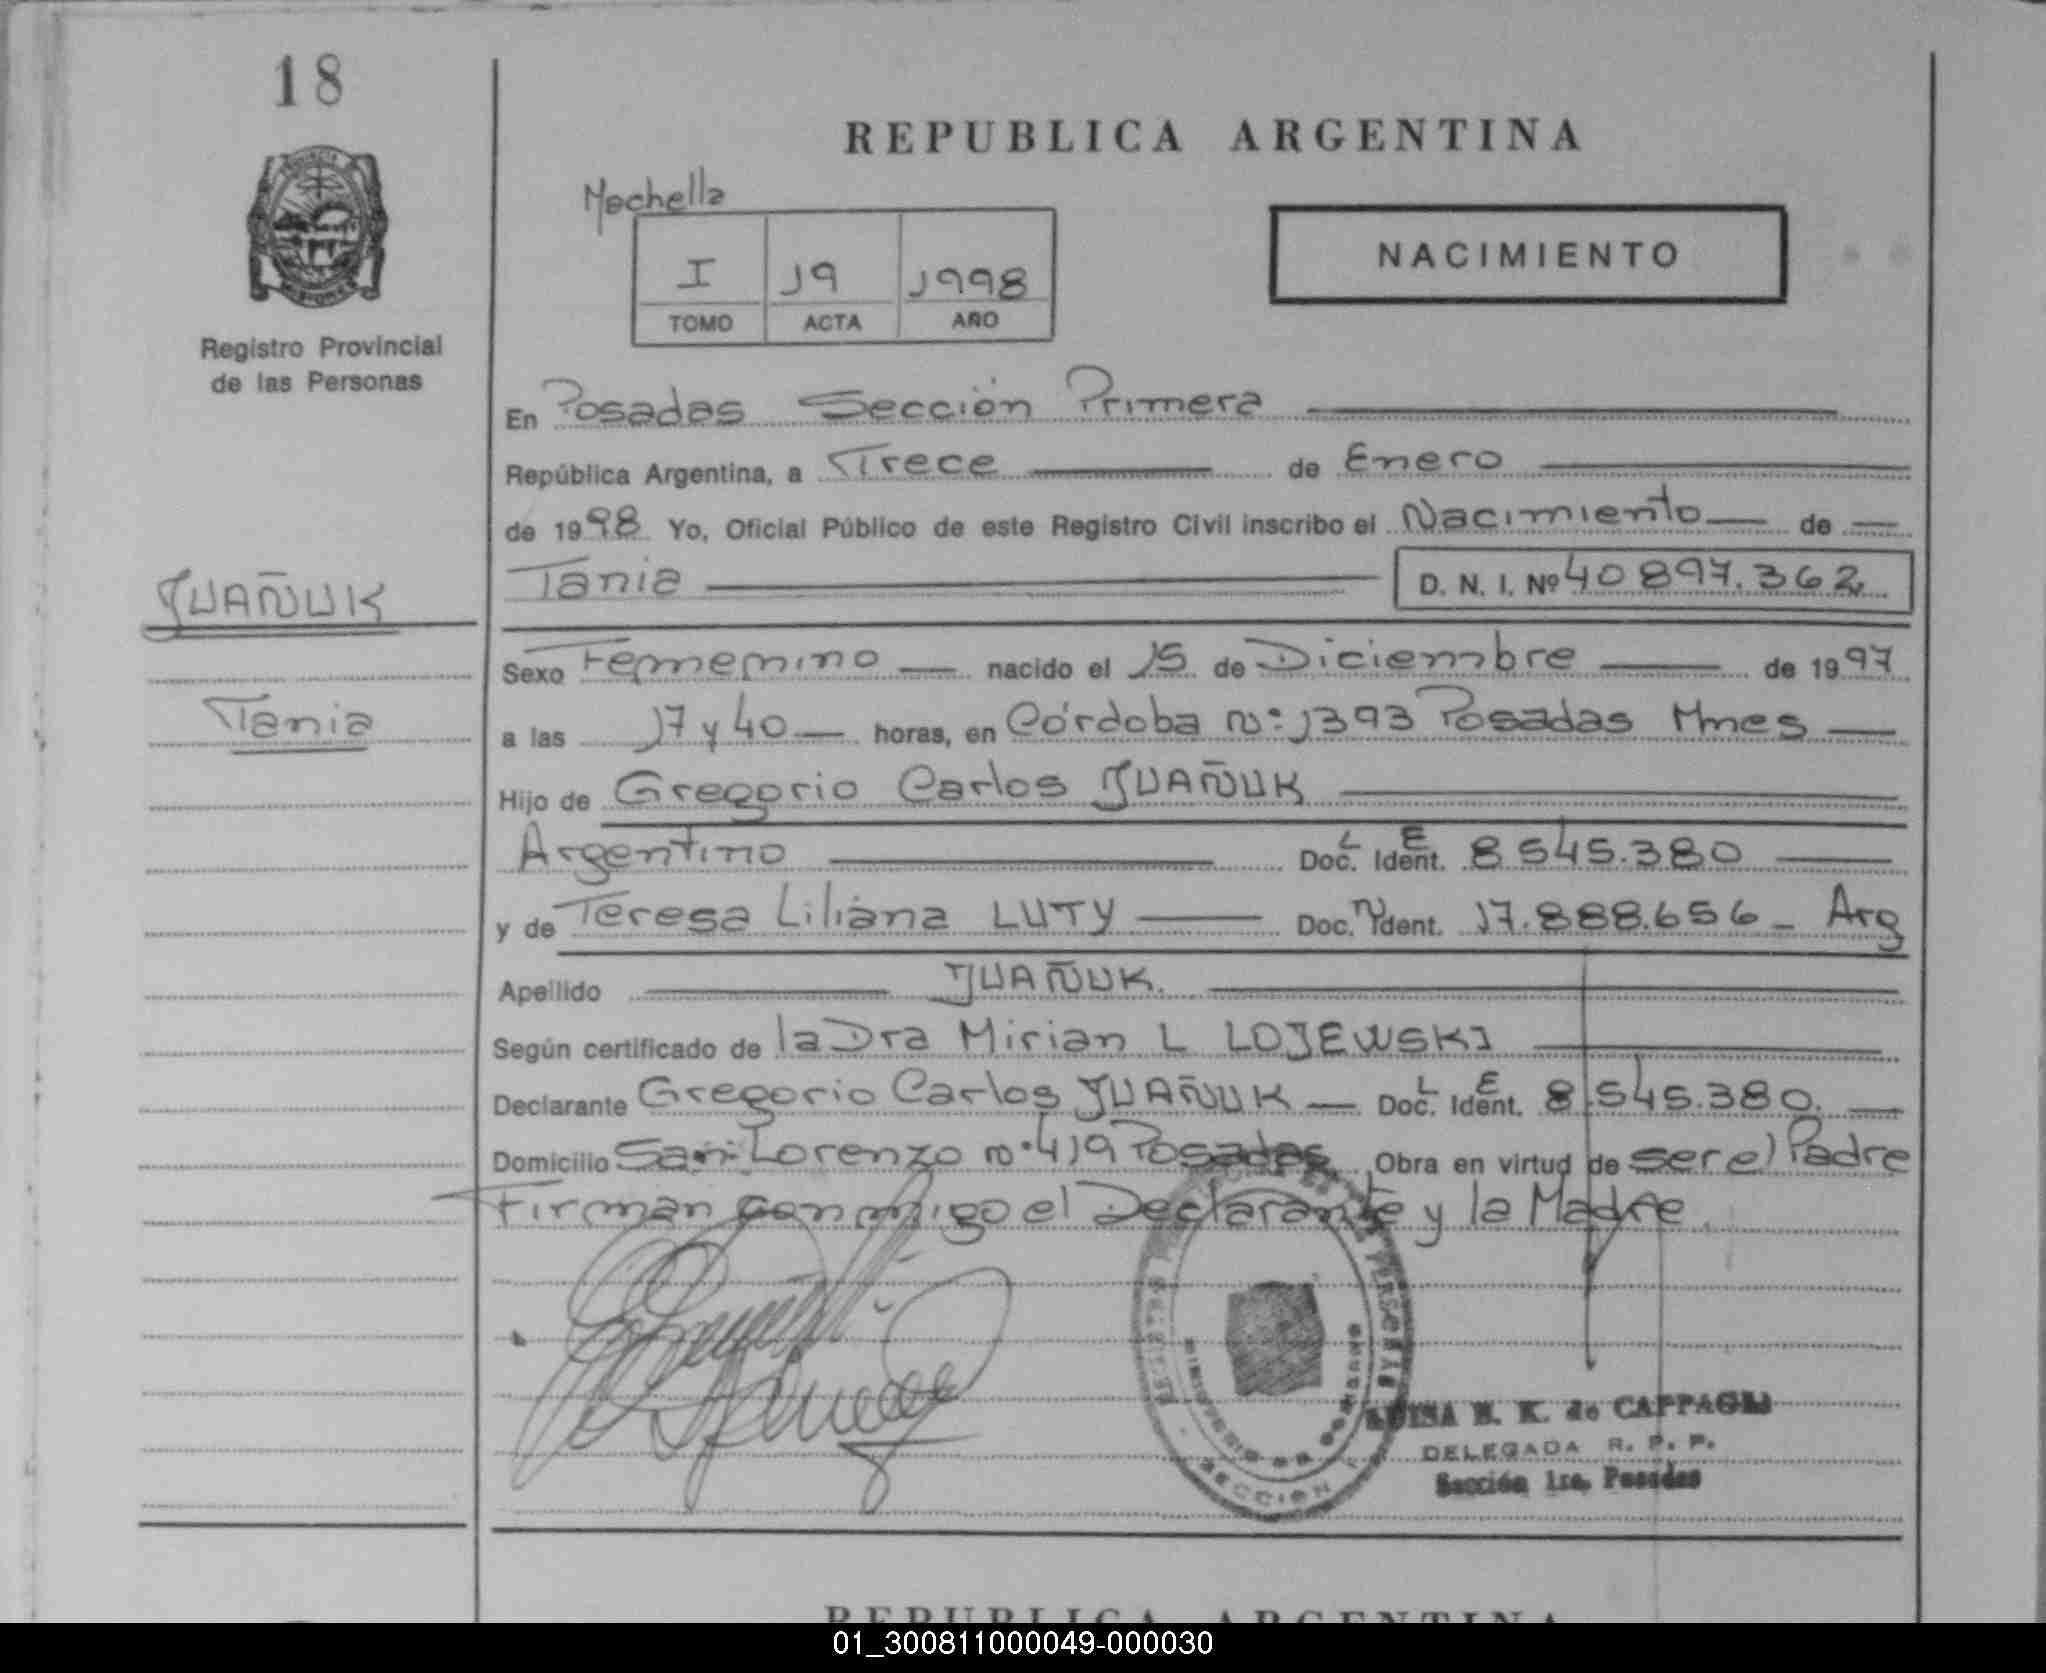 18
REPUBLICA ARGENTINA
Mochella
I J9 J998
TOMO ACTA AÑO
NACIMIENTO
Registro Provincial
de las Personas
En Posadas Sección Primera
República Argentina, a Trece de Enero
de 1998 Yo, Oficial Público de este Registro Civil inscribo el Nacimiento de
Tania D. N. I. Nº 40897.362
JUAÑUK
Tania
Sexo Femenino nacido el 15 de Diciembre de 1997
a las 17 y 40 horas, en Córdoba nº 1393 Posadas Mnes
Hijo de Gregorio Carlos JUAÑUK
Argentino Doc. Ident. L E 8545.380
y de Teresa Liliana LUTY Doc. Ident. 17.888.656 Arg
Apellido JUAÑUK.
Según certificado de la Dra Mirian L LOJEWSKI
Declarante Gregorio Carlos JUAÑUK Doc. Ident. L E 8.545.380.
Domicilio San Lorenzo nº 419 Posadas Obra en virtud de ser el Padre
Firman conmigo el Declarante y la Madre.
SECCION
N. K. de CAPPAGLI
DELEGADA R. P. P.
Sección 1ra. Posadas
REPUBLICA ARGENTINA
01_300811000049-000030